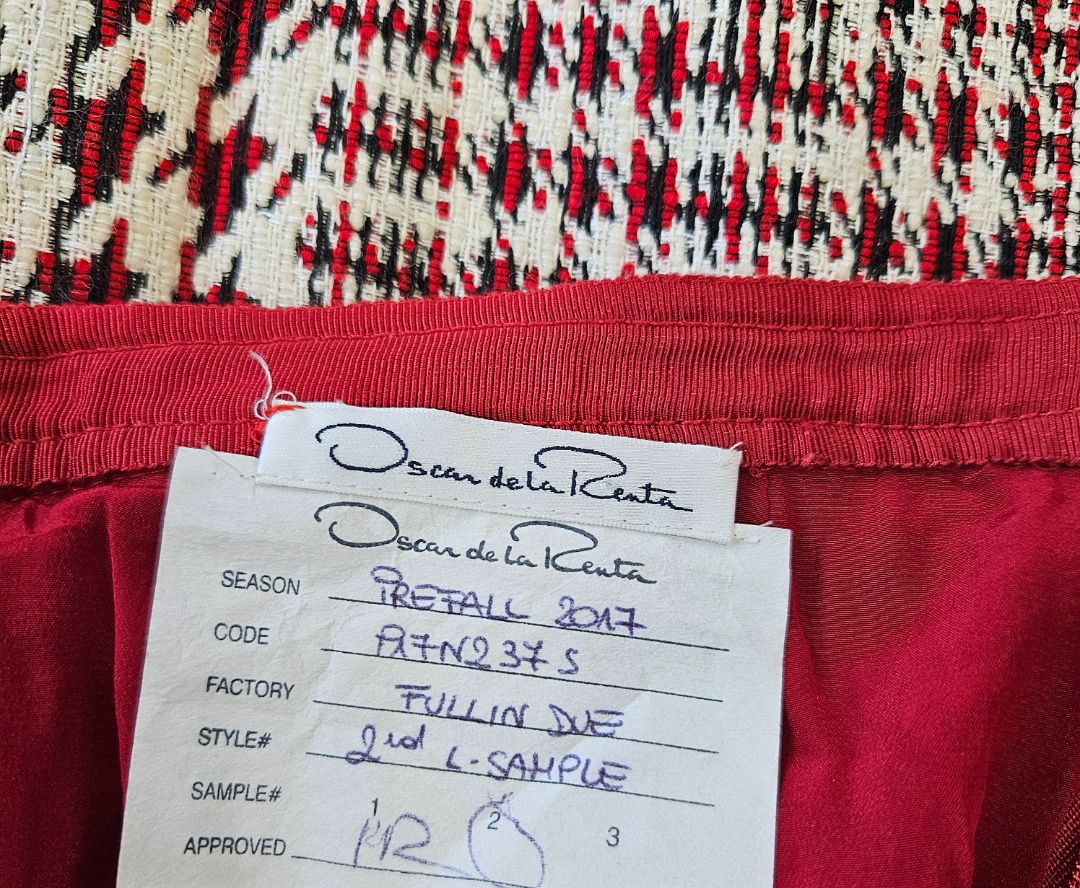 Oscar de la Renta
Oscar de la Renta
SEASON PREFALL 2017
CODE P17N237S
FACTORY FULLIN DUE
STYLE# 2nd L-SAMPLE
SAMPLE# 1 2 3
APPROVED